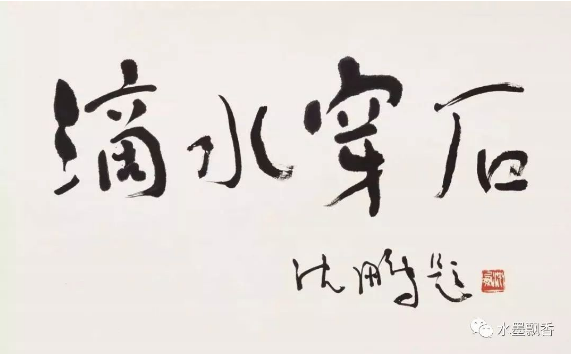 滴水穿石
沈鹏题
水墨飘香